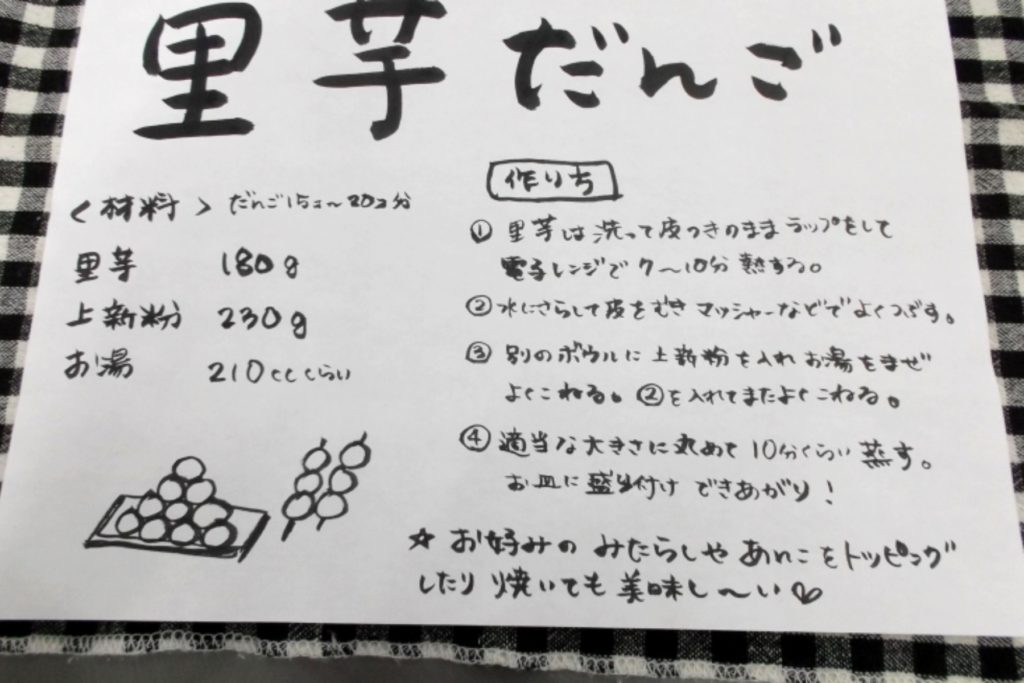 里芋だんご
<材料> だんご15コ〜20コ分
里芋 180g
上新粉 230g
お湯 210ccくらい
作り方
① 里芋は洗って皮つきのままラップをして
電子レンジで7〜10分熱する。
② 水にさらして皮をむきマッシャーなどでよくつぶす。
③ 別のボウルに上新粉を入れお湯をまぜ
よくこねる。②を入れてまたよくこねる。
④ 適当な大きさに丸めて10分くらい蒸す。
お皿に盛り付けできあがり!
☆ お好みのみたらしやあんこをトッピング
したり焼いても美味し〜い♡